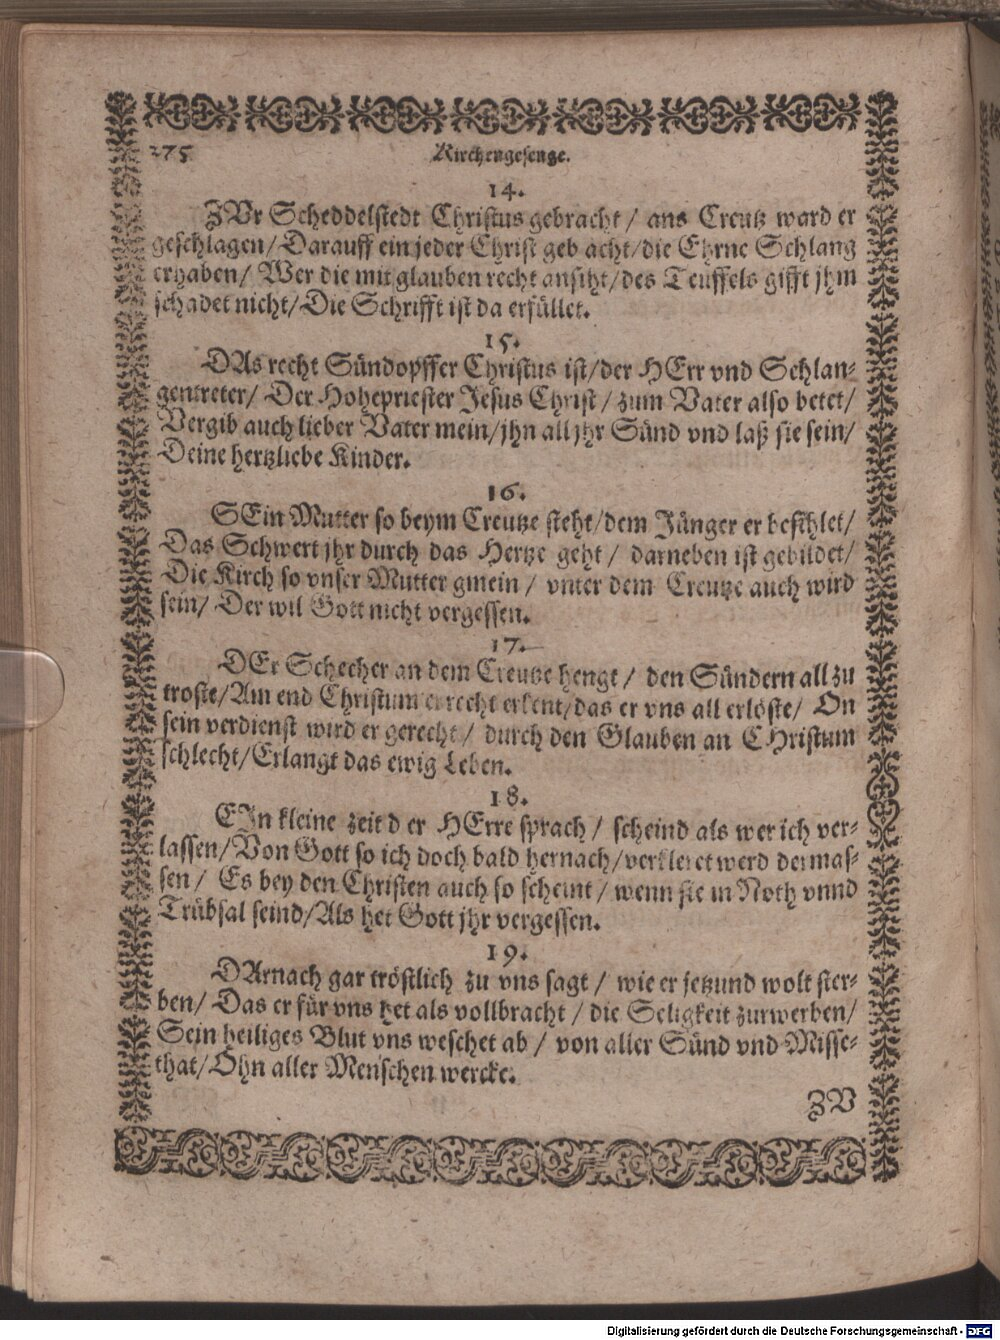 275 Kirchengesenge.
14.
ZVr Scheddelstedt Christus gebracht / ans Creutz ward er
geschlagen / Darauff ein jeder Christ geb acht / die Ehrne Schlang
erhaben / Wer die mit glauben recht ansiht / des Teuffels gifft jhm
schadet nicht / Die Schrifft ist da erfüllet.
15.
DAs recht Sündopffer Christus ist / der HErr vnd Schlan-
gentreter / Der Hohepriester Jesus Christ / zum Vater also betet /
Vergib auch lieber Vater mein / jhn all jhr Sünd vnd laß sie sein /
Deine hertzliebe Kinder.
16.
SEin Mutter so beym Creutze steht / dem Jünger er befihlet /
Das Schwert jhr durch das Hertze geht / darneben ist gebildet /
Die Kirch so vnser Mutter gmein / vnter dem Creutze auch wird
sein / Der wil Gott nicht vergessen.
17.
DEr Schecher an dem Creutze hengt / den Sündern all zu
troste / Am end Christum er recht erkent / das er vns all erlöste / On
sein verdienst wird er gerecht / durch den Glauben an CHristum
schlecht / Erlangt das ewig Leben.
18.
EJn kleine zeit der HErre sprach / scheind als wer ich ver-
lassen / Von Gott so ich doch bald hernach / verkleret werd dermas-
sen / Es bey den Christen auch so scheint / wenn sie in Noth vnnd
Trübsal seind / Als het Gott jhr vergessen.
19.
DArnach gar tröstlich zu vns sagt / wie er jetzund wolt ster-
ben / Das er für vns het als vollbracht / die Seligkeit zurwerben /
Sein heiliges Blut vns weschet ab / von aller Sünd vnd Misse-
that / Ohn aller Menschen wercke.
ZV
Digitalisierung gefördert durch die Deutsche Forschungsgemeinschaft - DFG